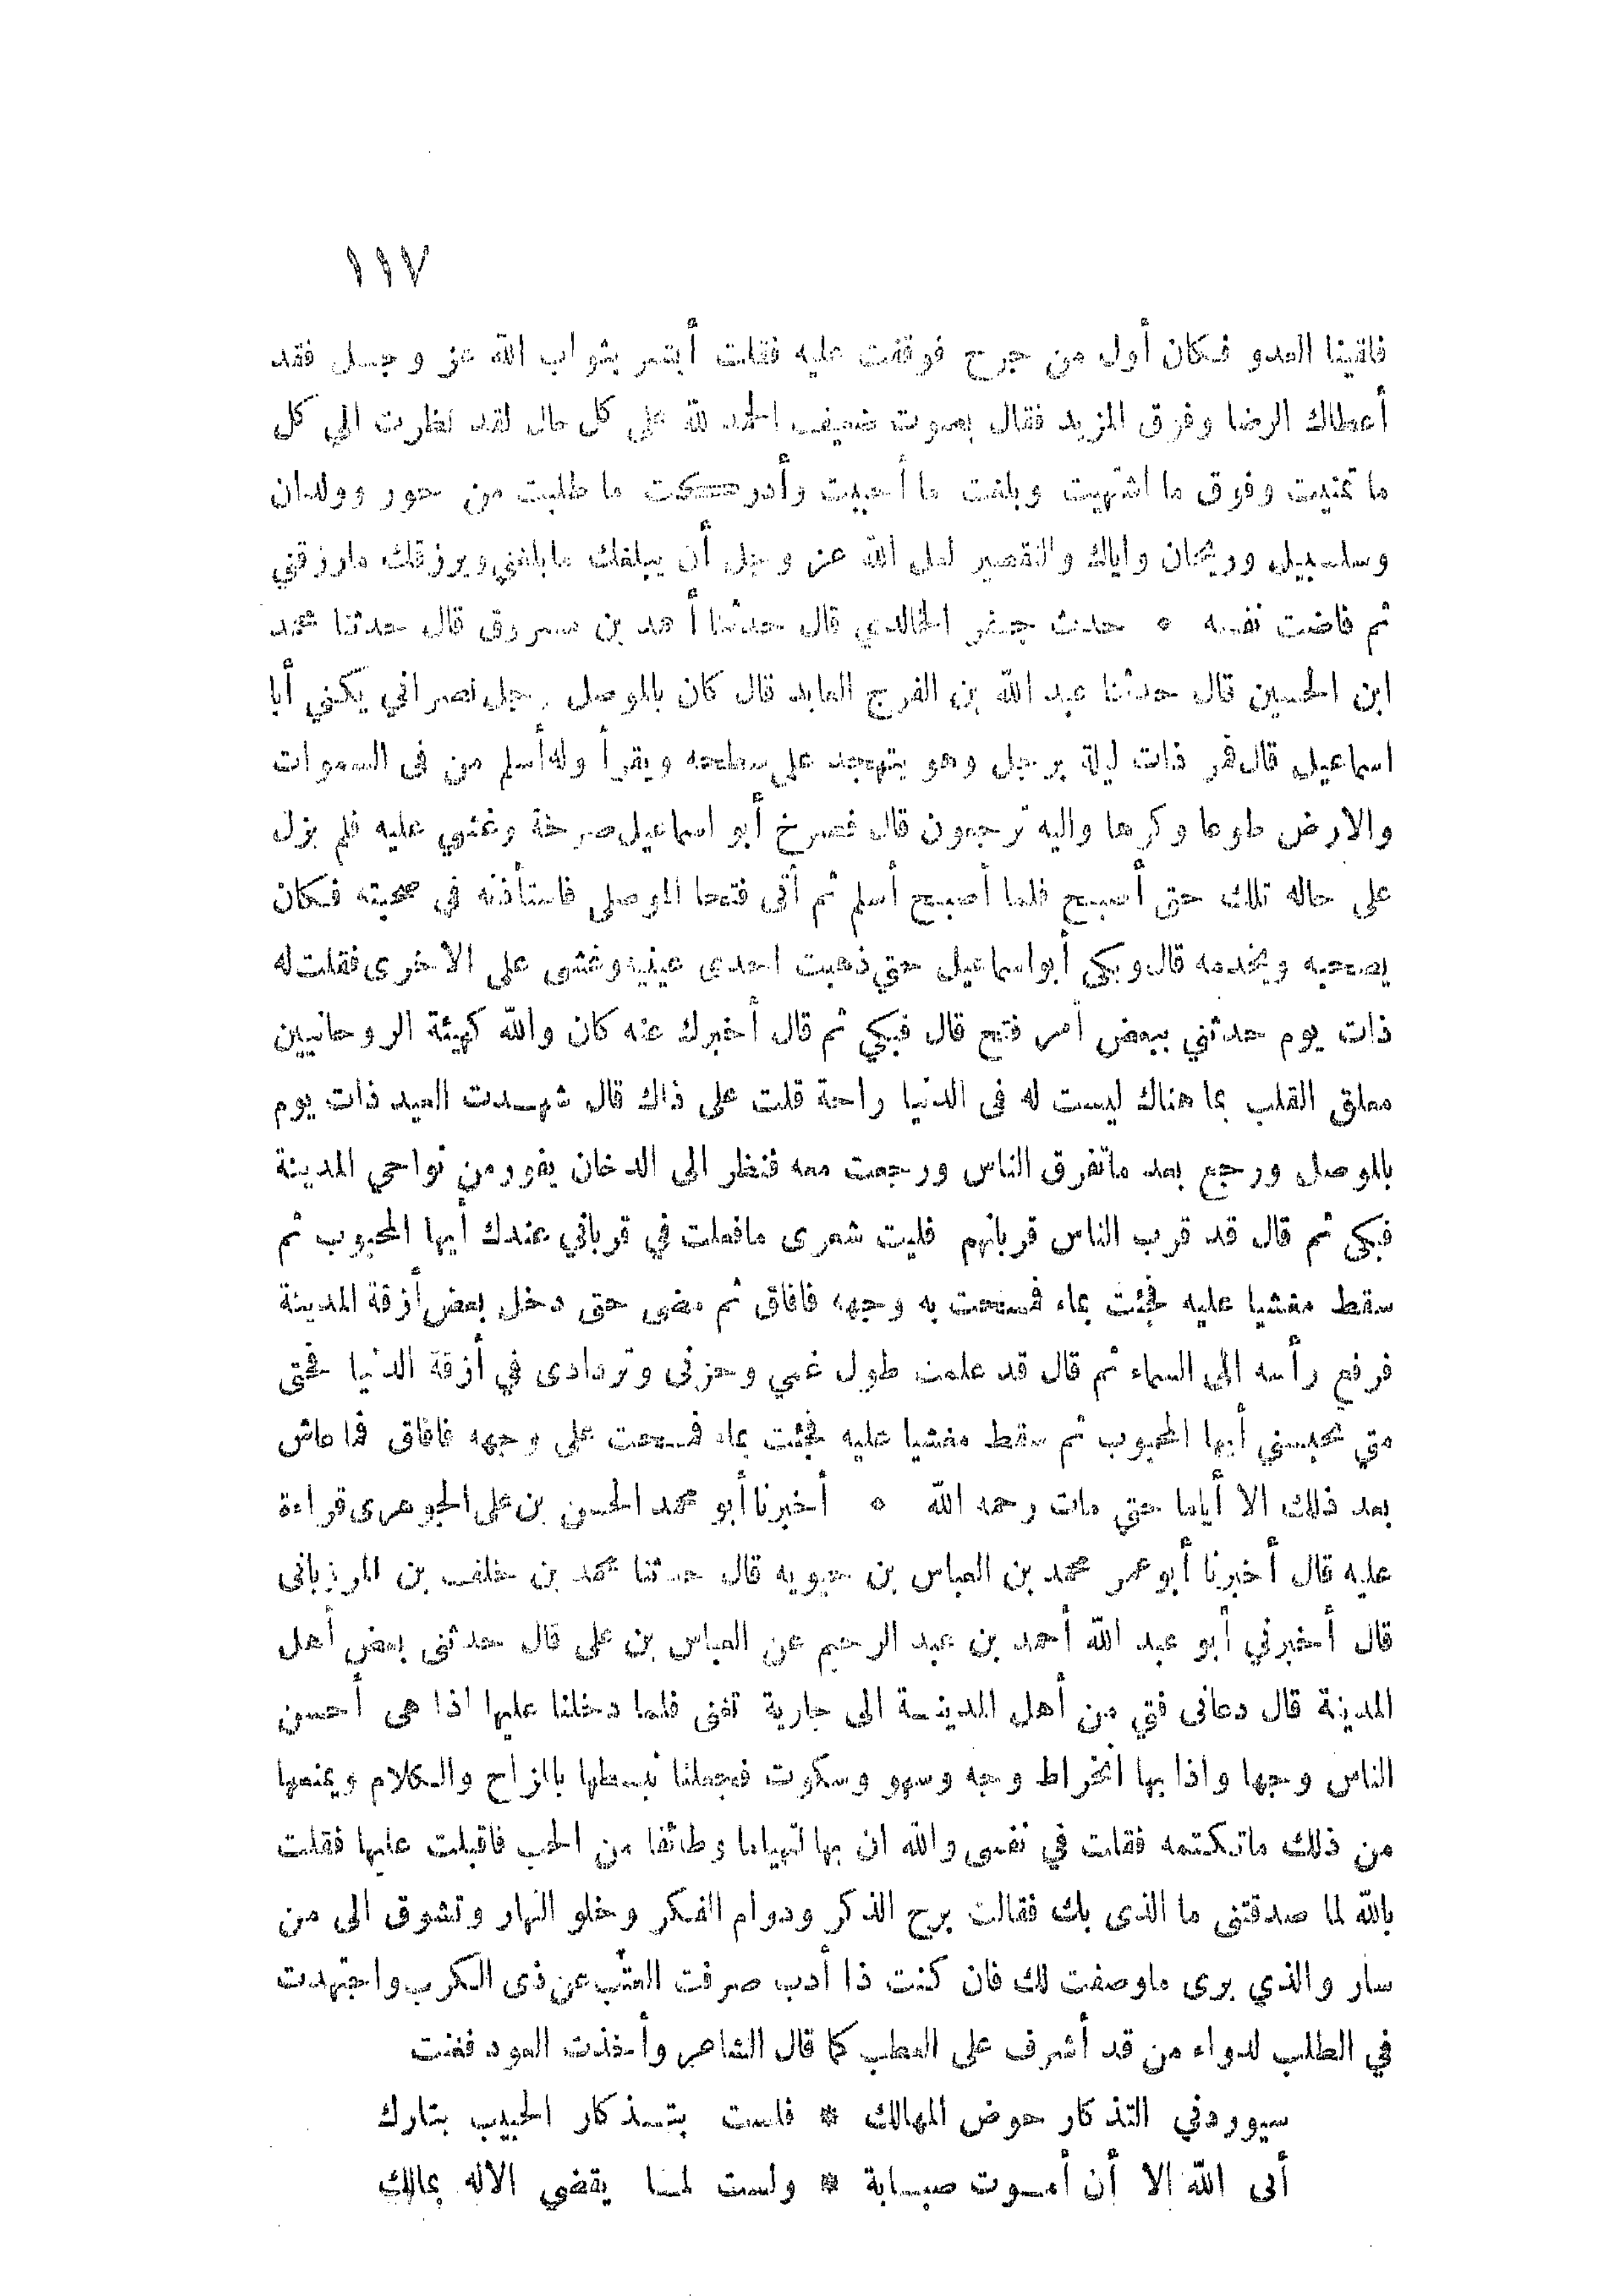 ١١٧
فلقينا العدو فكان أول من جرح فوقفت عليه فقلت أبشر بثواب الله عز وجل فقد
أعطاك الرضا وفرق المزيد فقال بصوت ضعيف الحمد لله على كل حال لقد نظرت الي كل
ما تمنيت وفوق ما اشتهيت وبلغت ما أحببت وأدركت ما طلبت من حور وولدان
وسلسبيل وريحان واياك والتقصير لعل الله عز وجل أن يبلغك مابلغني ويرزقك مارزقني
ثم فاضت نفسه * حدث جعفر الخالدي قال حدثنا أحمد بن مسروق قال حدثنا محمد
ابن الحسين قال حدثنا عبد الله بن الفرج العابد قال كان بالموصل رجل نصراني يكني أبا
اسماعيل قال فمر ذات ليلة برجل وهو يتهجد على سطحه ويقرأ وله أسلم من فى السموات
والارض طوعا وكرها واليه ترجعون قال فصرخ أبو اسماعيل صرخة وغشي عليه فلم يزل
على حاله تلك حتى أصبح فلما أصبح أسلم ثم أتى فتحا الموصلى فاستأذنه في صحبته فكان
يصحبه ويخدمه قال وبكى أبو اسماعيل حتي ذهبت احدى عينيه وغشى على الاخرى فقلت له
ذات يوم حدثني ببعض أمر فتح قال فبكي ثم قال أخبرك عنه كان والله كهيئة الروحانيين
معلق القلب بما هناك ليست له فى الدنيا راحة قلت على ذاك قال شهدت العيد ذات يوم
بالموصل ورجع بعد ماتفرق الناس ورجعت معه فنظر الى الدخان يفور من نواحي المدينة
فبكى ثم قال قد قرب الناس قربانهم فليت شعرى مافعلت في قرباني عندك أيها المحبوب ثم
سقط مغشيا عليه فجئت بماء فمسحت به وجهه فافاق ثم مضى حتى دخل بعض أزقة المدينة
فرفع رأسه الى السماء ثم قال قد علمت طول غمي وحزنى وتردادى في أزقة الدنيا فحتى
متي تحبسني أيها المحبوب ثم سقط مغشيا عليه فجئت بماء فمسحت على وجهه فافاق فما عاش
بعد ذلك الا أياما حتي مات رحمه الله * أخبرنا أبو محمد الحسن بن على الجوهرى قراءة
عليه قال أخبرنا أبو عمر محمد بن العباس بن حيويه قال حدثنا محمد بن خلف بن المرزبانى
قال أخبرني أبو عبد الله أحمد بن عبد الرحيم عن العباس بن على قال حدثنى بعض أهل
المدينة قال دعانى فتي من أهل المدينة الى جارية تغنى فلما دخلنا عليها اذا هى أحسن
الناس وجها واذا بها انخراط وجه وسهو وسكوت فجعلنا نبسطها بالمزاح والكلام ويمنعها
من ذلك ماتكتمه فقلت في نفسى والله ان بها لتهياما وطائفا من الحب فاقبلت عليها فقلت
بالله لما صدقتنى ما الذى بك فقالت برح الذكر ودوام الفكر وخلو النهار وتشوق الى من
سار والذي يرى ماوصفت لك فان كنت ذا أدب صرفت العتب عن ذى الكرب واجتهدت
في الطلب لدواء من قد أشرف على العطب كما قال الشاعر وأخذت العود فغنت
سيوردني التذكار حوض المهالك * فلست بتذكار الحبيب بتارك
أبى الله الا أن أموت صبابة * ولست لما يقضي الاله بمالك